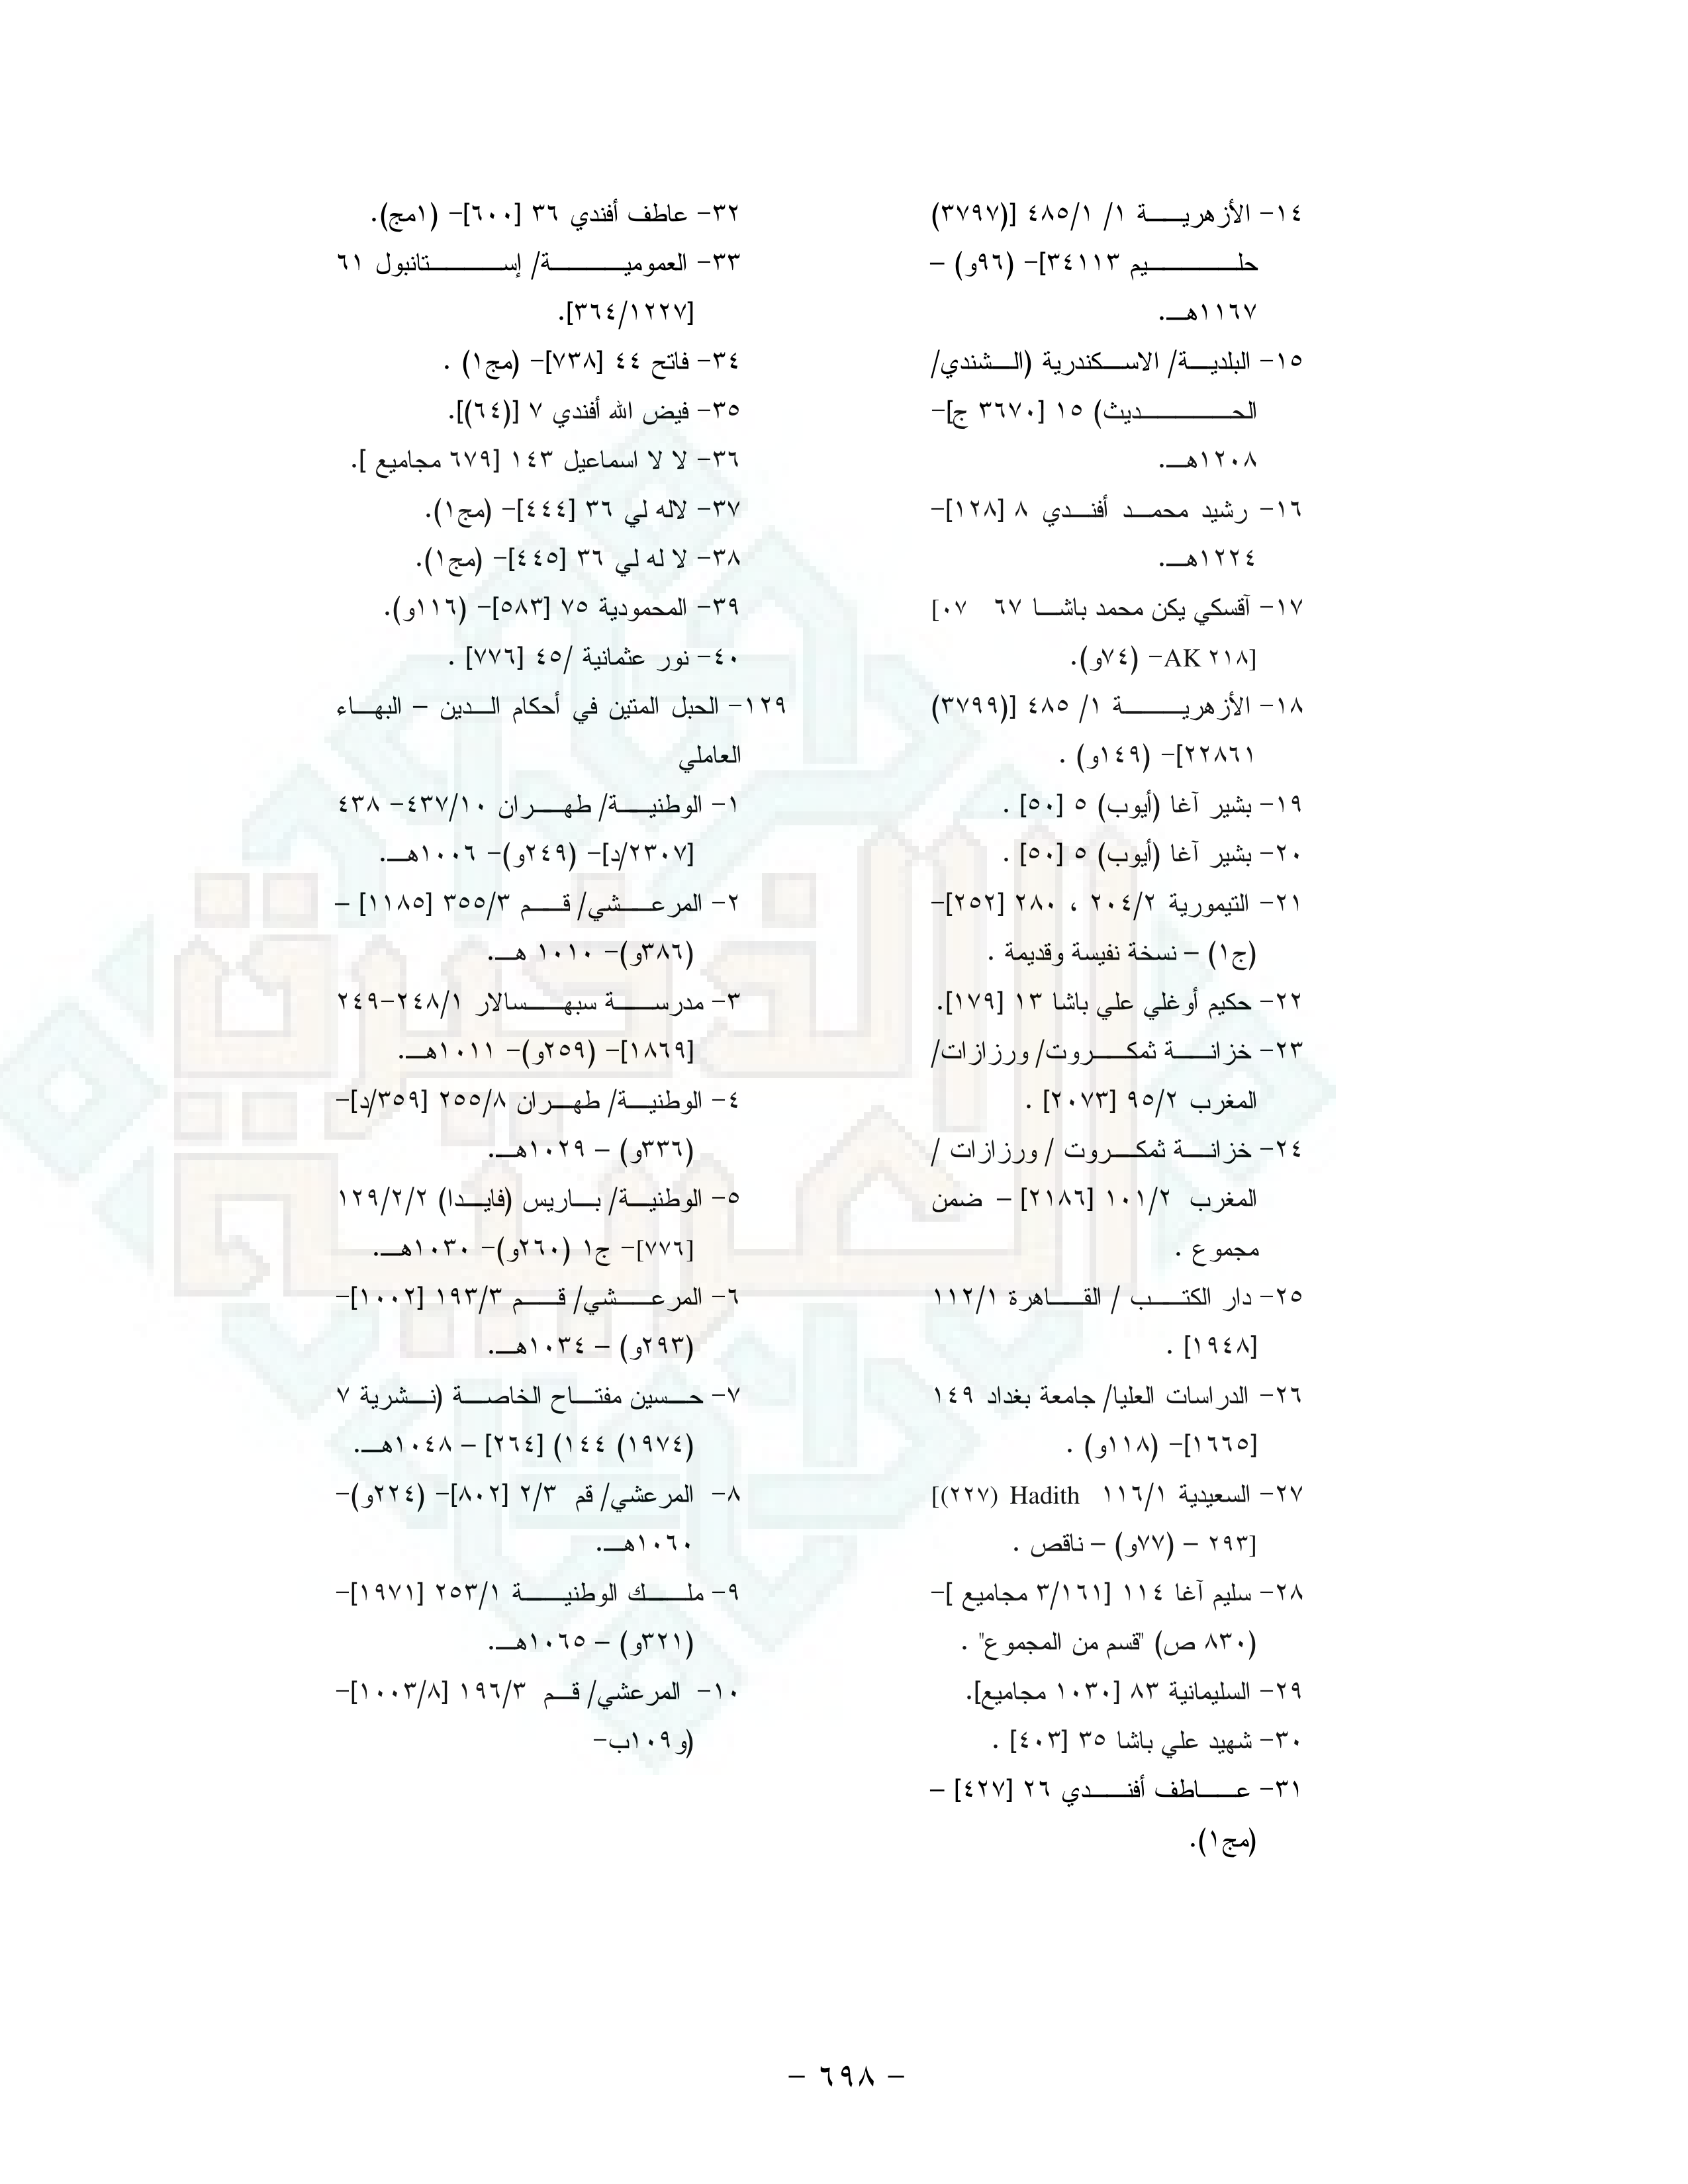 ١٤- الأزهرية ١/ ٤٨٥/١ [(٣٧٩٧)
حليم ٣٤١١٣]- (٩٦و) –
١١٦٧هـ.
١٥- البلدية/ الاسكندرية (الشندي/
الحديث) ١٥ [٣٦٧٠ ج]-
١٢٠٨هـ.
١٦- رشيد محمد أفندي ٨ [١٢٨]-
١٢٢٤هـ.
١٧- آقسكي يكن محمد باشا ٦٧ ٠٧]
[AK ٢١٨- (٧٤و).
١٨- الأزهرية ١/ ٤٨٥ [(٣٧٩٩)
٢٢٨٦١]- (١٤٩و) .
١٩- بشير آغا (أيوب) ٥ [٥٠] .
٢٠- بشير آغا (أيوب) ٥ [٥٠] .
٢١- التيمورية ٢٠٤/٢ ، ٢٨٠ [٢٥٢]-
(ج١) – نسخة نفيسة وقديمة .
٢٢- حكيم أوغلي علي باشا ١٣ [١٧٩].
٢٣- خزانة ثمكروت/ ورزازات/
المغرب ٩٥/٢ [٢٠٧٣] .
٢٤- خزانة ثمكروت / ورزازات /
المغرب ١٠١/٢ [٢١٨٦] – ضمن
مجموع .
٢٥- دار الكتب / القاهرة ١١٢/١
[١٩٤٨] .
٢٦- الدراسات العليا/ جامعة بغداد ١٤٩
[١٦٦٥]- (١١٨و) .
٢٧- السعيدية ١١٦/١ Hadith (٢٢٧)]
[٢٩٣ – (٧٧و) – ناقص .
٢٨- سليم آغا ١١٤ [٣/١٦١ مجاميع ]-
(٨٣٠ ص) "قسم من المجموع" .
٢٩- السليمانية ٨٣ [١٠٣٠ مجاميع].
٣٠- شهيد علي باشا ٣٥ [٤٠٣] .
٣١- عاطف أفندي ٢٦ [٤٢٧] –
(مج١).
٣٢- عاطف أفندي ٣٦ [٦٠٠]- (١مج).
٣٣- العمومية/ إستانبول ٦١
[٣٦٤/١٢٢٧].
٣٤- فاتح ٤٤ [٧٣٨]- (مج١) .
٣٥- فيض الله أفندي ٧ [(٦٤)].
٣٦- لا لا اسماعيل ١٤٣ [٦٧٩ مجاميع ].
٣٧- لاله لي ٣٦ [٤٤٤]- (مج١).
٣٨- لا له لي ٣٦ [٤٤٥]- (مج١).
٣٩- المحمودية ٧٥ [٥٨٣]- (١١٦و).
٤٠- نور عثمانية /٤٥ [٧٧٦] .
١٢٩- الحبل المتين في أحكام الدين – البهاء
العاملي
١- الوطنية/ طهران ٤٣٧/١٠- ٤٣٨
[٢٣٠٧/د]- (٢٤٩و)- ١٠٠٦هـ.
٢- المرعشي/ قم ٣٥٥/٣ [١١٨٥] –
(٣٨٦و)- ١٠١٠ هـ.
٣- مدرسة سبهسالار ٢٤٨/١-٢٤٩
[١٨٦٩]- (٢٥٩و)- ١٠١١هـ.
٤- الوطنية/ طهران ٢٥٥/٨ [٣٥٩/د]-
(٣٣٦و) – ١٠٢٩هـ.
٥- الوطنية/ باريس (فايدا) ١٢٩/٢/٢
[٧٧٦]- ج١ (٢٦٠و)- ١٠٣٠هـ.
٦- المرعشي/ قم ١٩٣/٣ [١٠٠٢]-
(٢٩٣و) – ١٠٣٤هـ.
٧- حسين مفتاح الخاصة (نشرية ٧
(١٩٧٤) ١٤٤) [٢٦٤] – ١٠٤٨هـ.
٨- المرعشي/ قم ٢/٣ [٨٠٢]- (٢٢٤و)-
١٠٦٠هـ.
٩- ملك الوطنية ٢٥٣/١ [١٩٧١]-
(٣٢١و) – ١٠٦٥هـ.
١٠- المرعشي/ قم ١٩٦/٣ [١٠٠٣/٨]-
(و١٠٩ب-
- ٦٩٨ -